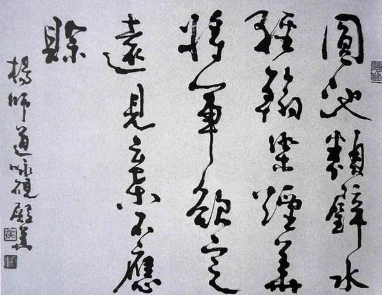 圓池類璧水
輕翰染煙華
將軍欲定
遠見棄不應
賒
楊師道詠硯